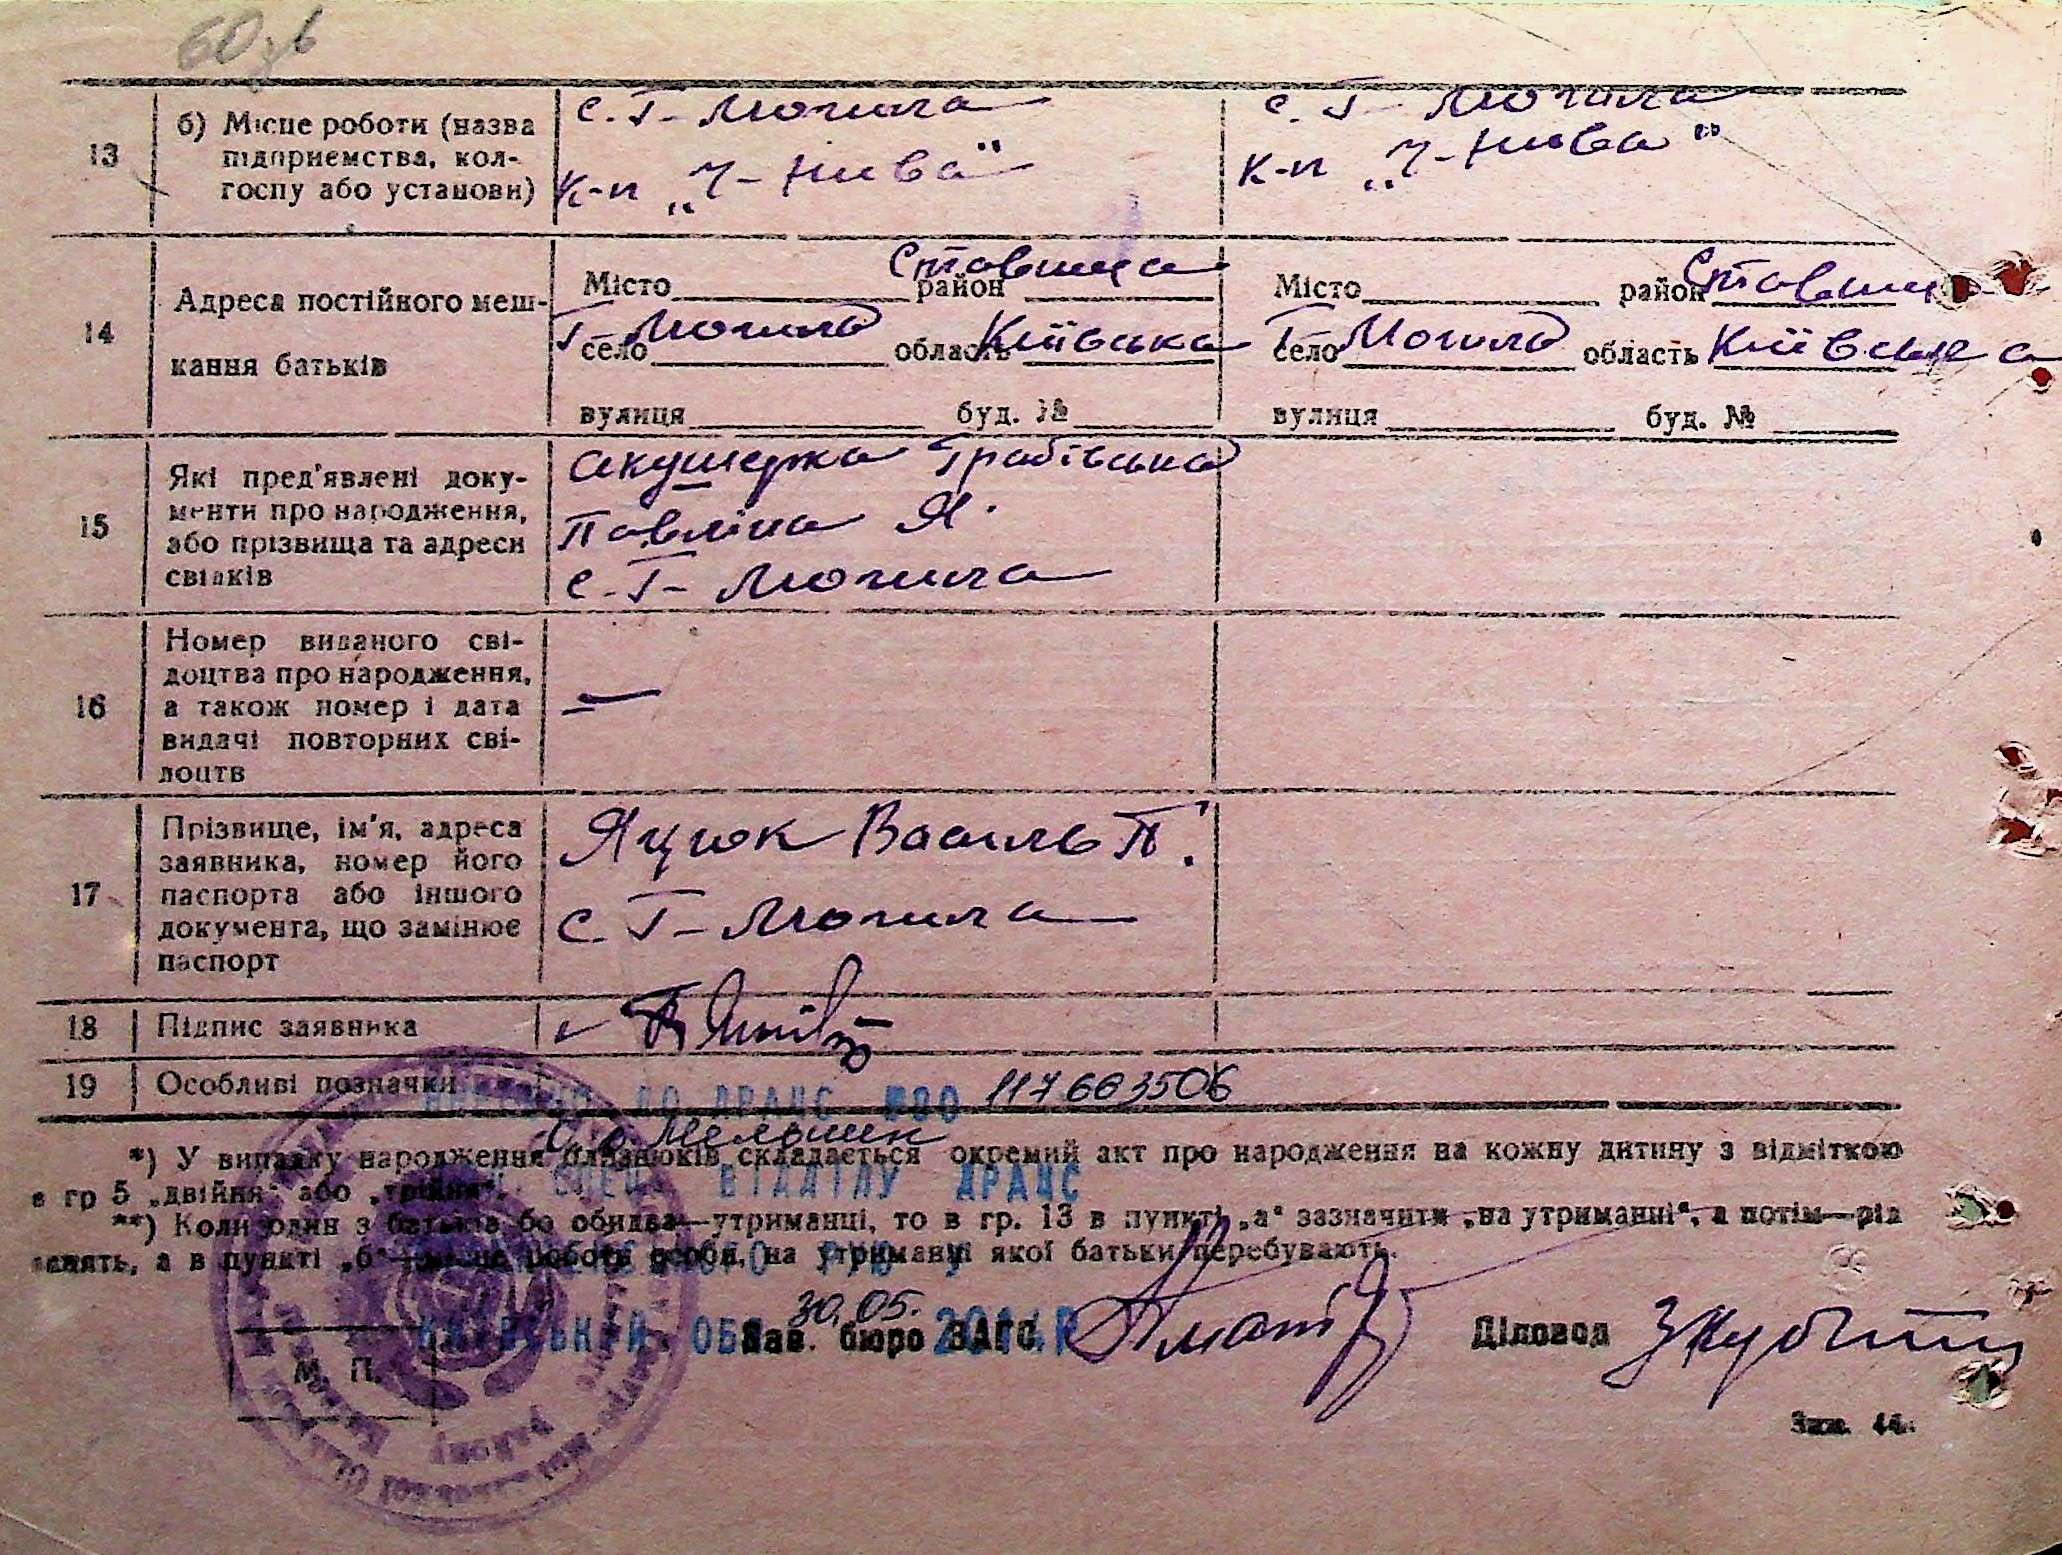 60 зв
13
б) Місце роботи (назва
підприємства, кол-
госпу або установи)
с. Г- Могила
к-п „Ч- Нива"
с. Г- Могила
к-п „Ч- Нива"
14
Адреса постійного меш-
кання батьків
Місто район Ставища
село Г- Могила область Київська
вулиця буд. №
Місто район Ставище
село Г- Могила область Київська
вулиця буд. №
15
Які пред'явлені доку-
менти про народження,
або прізвища та адреси
свідків
акушерка Грабівська
Павліна Я.
с. Г- Могила
16
Номер виданого сві-
доцтва про народження,
а також номер і дата
видачі повторних сві-
доцтв
—
17
Прізвище, ім'я, адреса
заявника, номер його
паспорта або іншого
документа, що замінює
паспорт
Яцюк Василь П.
с. Г- Могила
18
Підпис заявника
19
Особливі позначки
ДО ДРАЦС
117663506
Мельник
*) У випадку народження близнюків складається окремий акт про народження на кожну дитину з відміткою
в гр 5 „двійня" або „трійня".
ВІДДІЛУ ДРАЦС
**) Коли один з батьків бо обидва—утриманці, то в гр. 13 в пункті „а" зазначити „на утриманні", а потім—рід
занять, а в пункті „б" місце роботи особи, на утриманні якої батьки перебувають.
РУЮ У
КИЇВСЬКІЙ ОБЛ
30.05.
2014Р
Зав. бюро ЗАГС
Діловод
М. П.
Зам. 44.